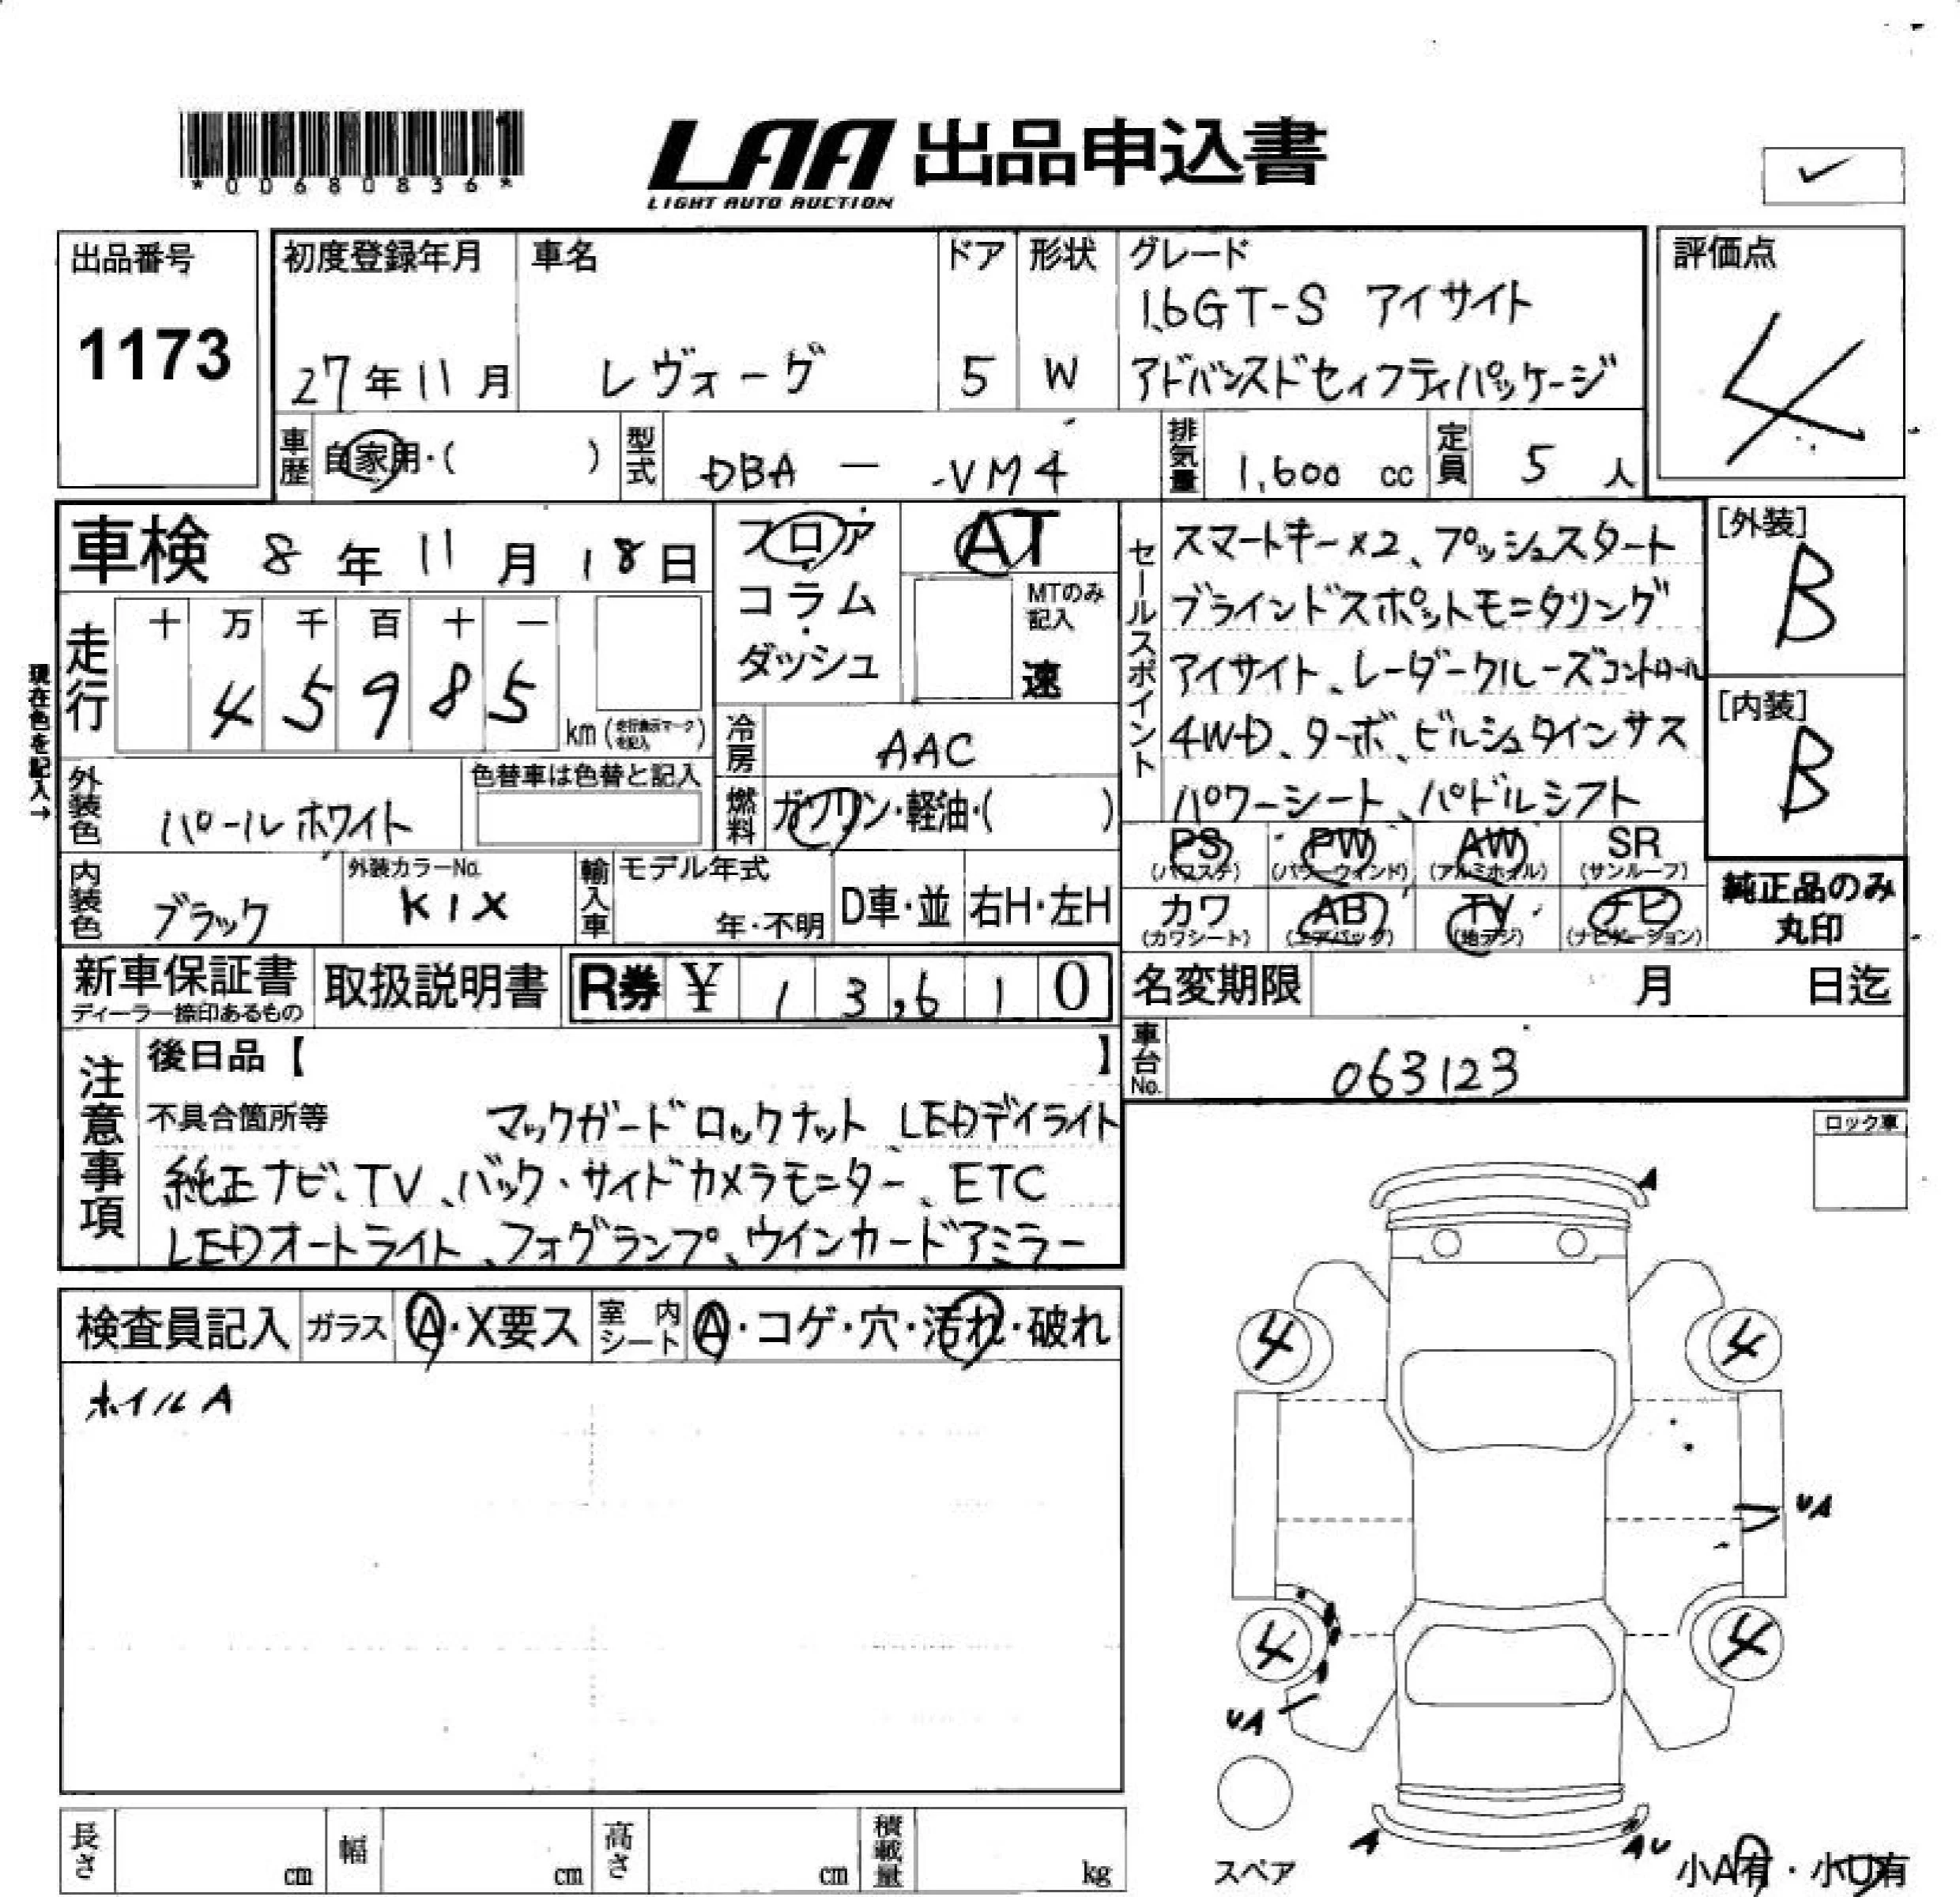 *00680836*
LAA 出品申込書
LIGHT AUTO AUCTION
出品番号
1173
初度登録年月
27年11月
車名
レヴォーグ
ドア
5
形状
W
グレード
1.6GT-S アイサイト
アドバンスドセイフティパッケージ
評価点
4
車歴 自家用・( )
型式 DBA — VM4
排気量 1,600 cc
定員 5 人
車検 8年11月18日
フロア
コラム
ダッシュ
AT
MTのみ
記入
速
現在色を記入→
走行
十 万 千 百 十 一
4 5 9 8 5
km(走行表示マークを記入)
冷房 AAC
外装色 パールホワイト
色替車は色替と記入
燃料 ガソリン・軽油・( )
内装色 ブラック
外装カラーNo.
K1X
輸入車
モデル年式
年・不明
D車・並
右H・左H
セールスポイント
スマートキー×2、プッシュスタート
ブラインドスポットモニタリング
アイサイト、レーダークルーズコントロール
4WD、ターボ、ビルシュタインサス
パワーシート、パドルシフト
[外装]
B
[内装]
B
PS
(パワステ)
PW
(パワーウインド)
AW
(アルミホイル)
SR
(サンルーフ)
カワ
(カワシート)
AB
(エアバック)
TV
(地デジ)
ナビ
(ナビゲーション)
純正品のみ
丸印
新車保証書
ディーラー捺印あるもの
取扱説明書
R券 ¥ 13,610
名変期限 月 日迄
車台No. 063123
注意事項
後日品【 】
不具合箇所等 マックガードロックナット LEDデイライト
純正ナビ、TV、バック・サイドカメラモニター、ETC
LEDオートライト、フォグランプ、ウインカードアミラー
ロック車
検査員記入
ガラス A・X要ス
室内シート A・コゲ・穴・汚れ・破れ
ホイルA
A
4 4
UA
4 4
UA
A
AU
スペア
小A有・小U有
長さ cm
幅 cm
高さ cm
積載量 kg